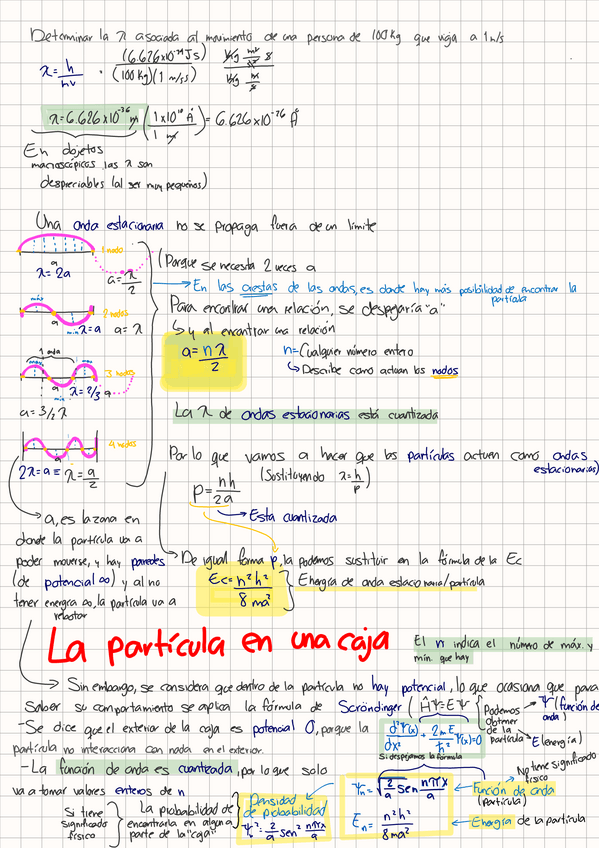 Determinar la λ asociada al movimiento de una persona de 100 kg que viaja a 1 m/s
λ = h/mv = (6.626x10⁻³⁴ J s)/(100 kg)(1 m/s)
λ = 6.626 x10⁻³⁶ m (1x10¹⁰ Å / 1 m) = 6.626 x10⁻²⁶ Å
En objetos
macroscópicos, las λ son
despreciables (al ser muy pequeños)
Una onda estacionaria no se propaga fuera de un límite
1 nodo
a
λ = 2a
a = λ/2
(Porque se necesita 2 veces a
En las crestas de las ondas, es donde hay más posibilidad de encontrar la
partícula
máx
2 nodos
mín
λ = a
a = λ
Para encontrar una relación, se despejaría "a"
↳ y al encontrar una relación
a = nλ/2
n = Cualquier número entero
↳ Describe como actúan los nodos
1 onda
3 nodos
a
λ = 2/3 a
a = 3/2 λ
La λ de ondas estacionarias está cuantizada
4 nodos
2λ = a = λ = a/2
Por lo que vamos a hacer que las partículas actúen como ondas
estacionarias)
(Sustituyendo λ = h/p)
p = nh/2a
→ Está cuantizada
→ a, es la zona en
donde la partícula va a
poder moverse, y hay paredes
(de potencial ∞) y al no
tener energía ∞, la partícula va a
rebotar
De igual forma p, la podemos sustituir en la fórmula de la Ec
Ec = n²h²/8ma²
} Energía de onda estacionaria/partícula
La partícula en una caja
El n indica el número de máx. y
mín. que hay
→ Sin embargo, se considera que dentro de la partícula no hay potencial, lo que ocasiona que para
Saber su comportamiento se aplica la fórmula de Scrondinger (ĤΨ = EΨ
Podemos
obtener
de la
partícula
Ψ (función de
onda)
E (energía)
-Se dice que el exterior de la caja es potencial 0, porque la
partícula no interacciona con nada en el exterior.
d²Ψ(x)/dx² + 2mE/ħ² Ψ(x) = 0
Si despejamos la fórmula
-La función de onda es cuantizada, por lo que solo
va a tomar valores enteros de n
No tiene significado
físico
Ψn = √(2/a) sen nπx/a
← Función de onda
(partícula)
Si tiene
significado
físico
La probabilidad de
encontrarla en alguna
parte de la "caja"
Densidad
de probabilidad
Ψ² = 2/a sen² nπx/a
En = n²h²/8ma²
← Energía de la partícula